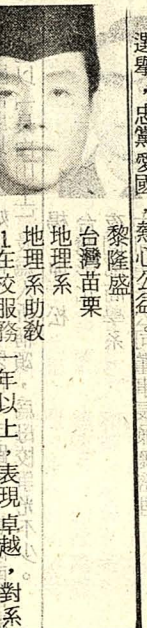 選舉，忠黨愛國，熱心公益
黎隆盛
台灣苗栗
地理系
地理系助教
1在校服務一年以上，表現卓越，對系